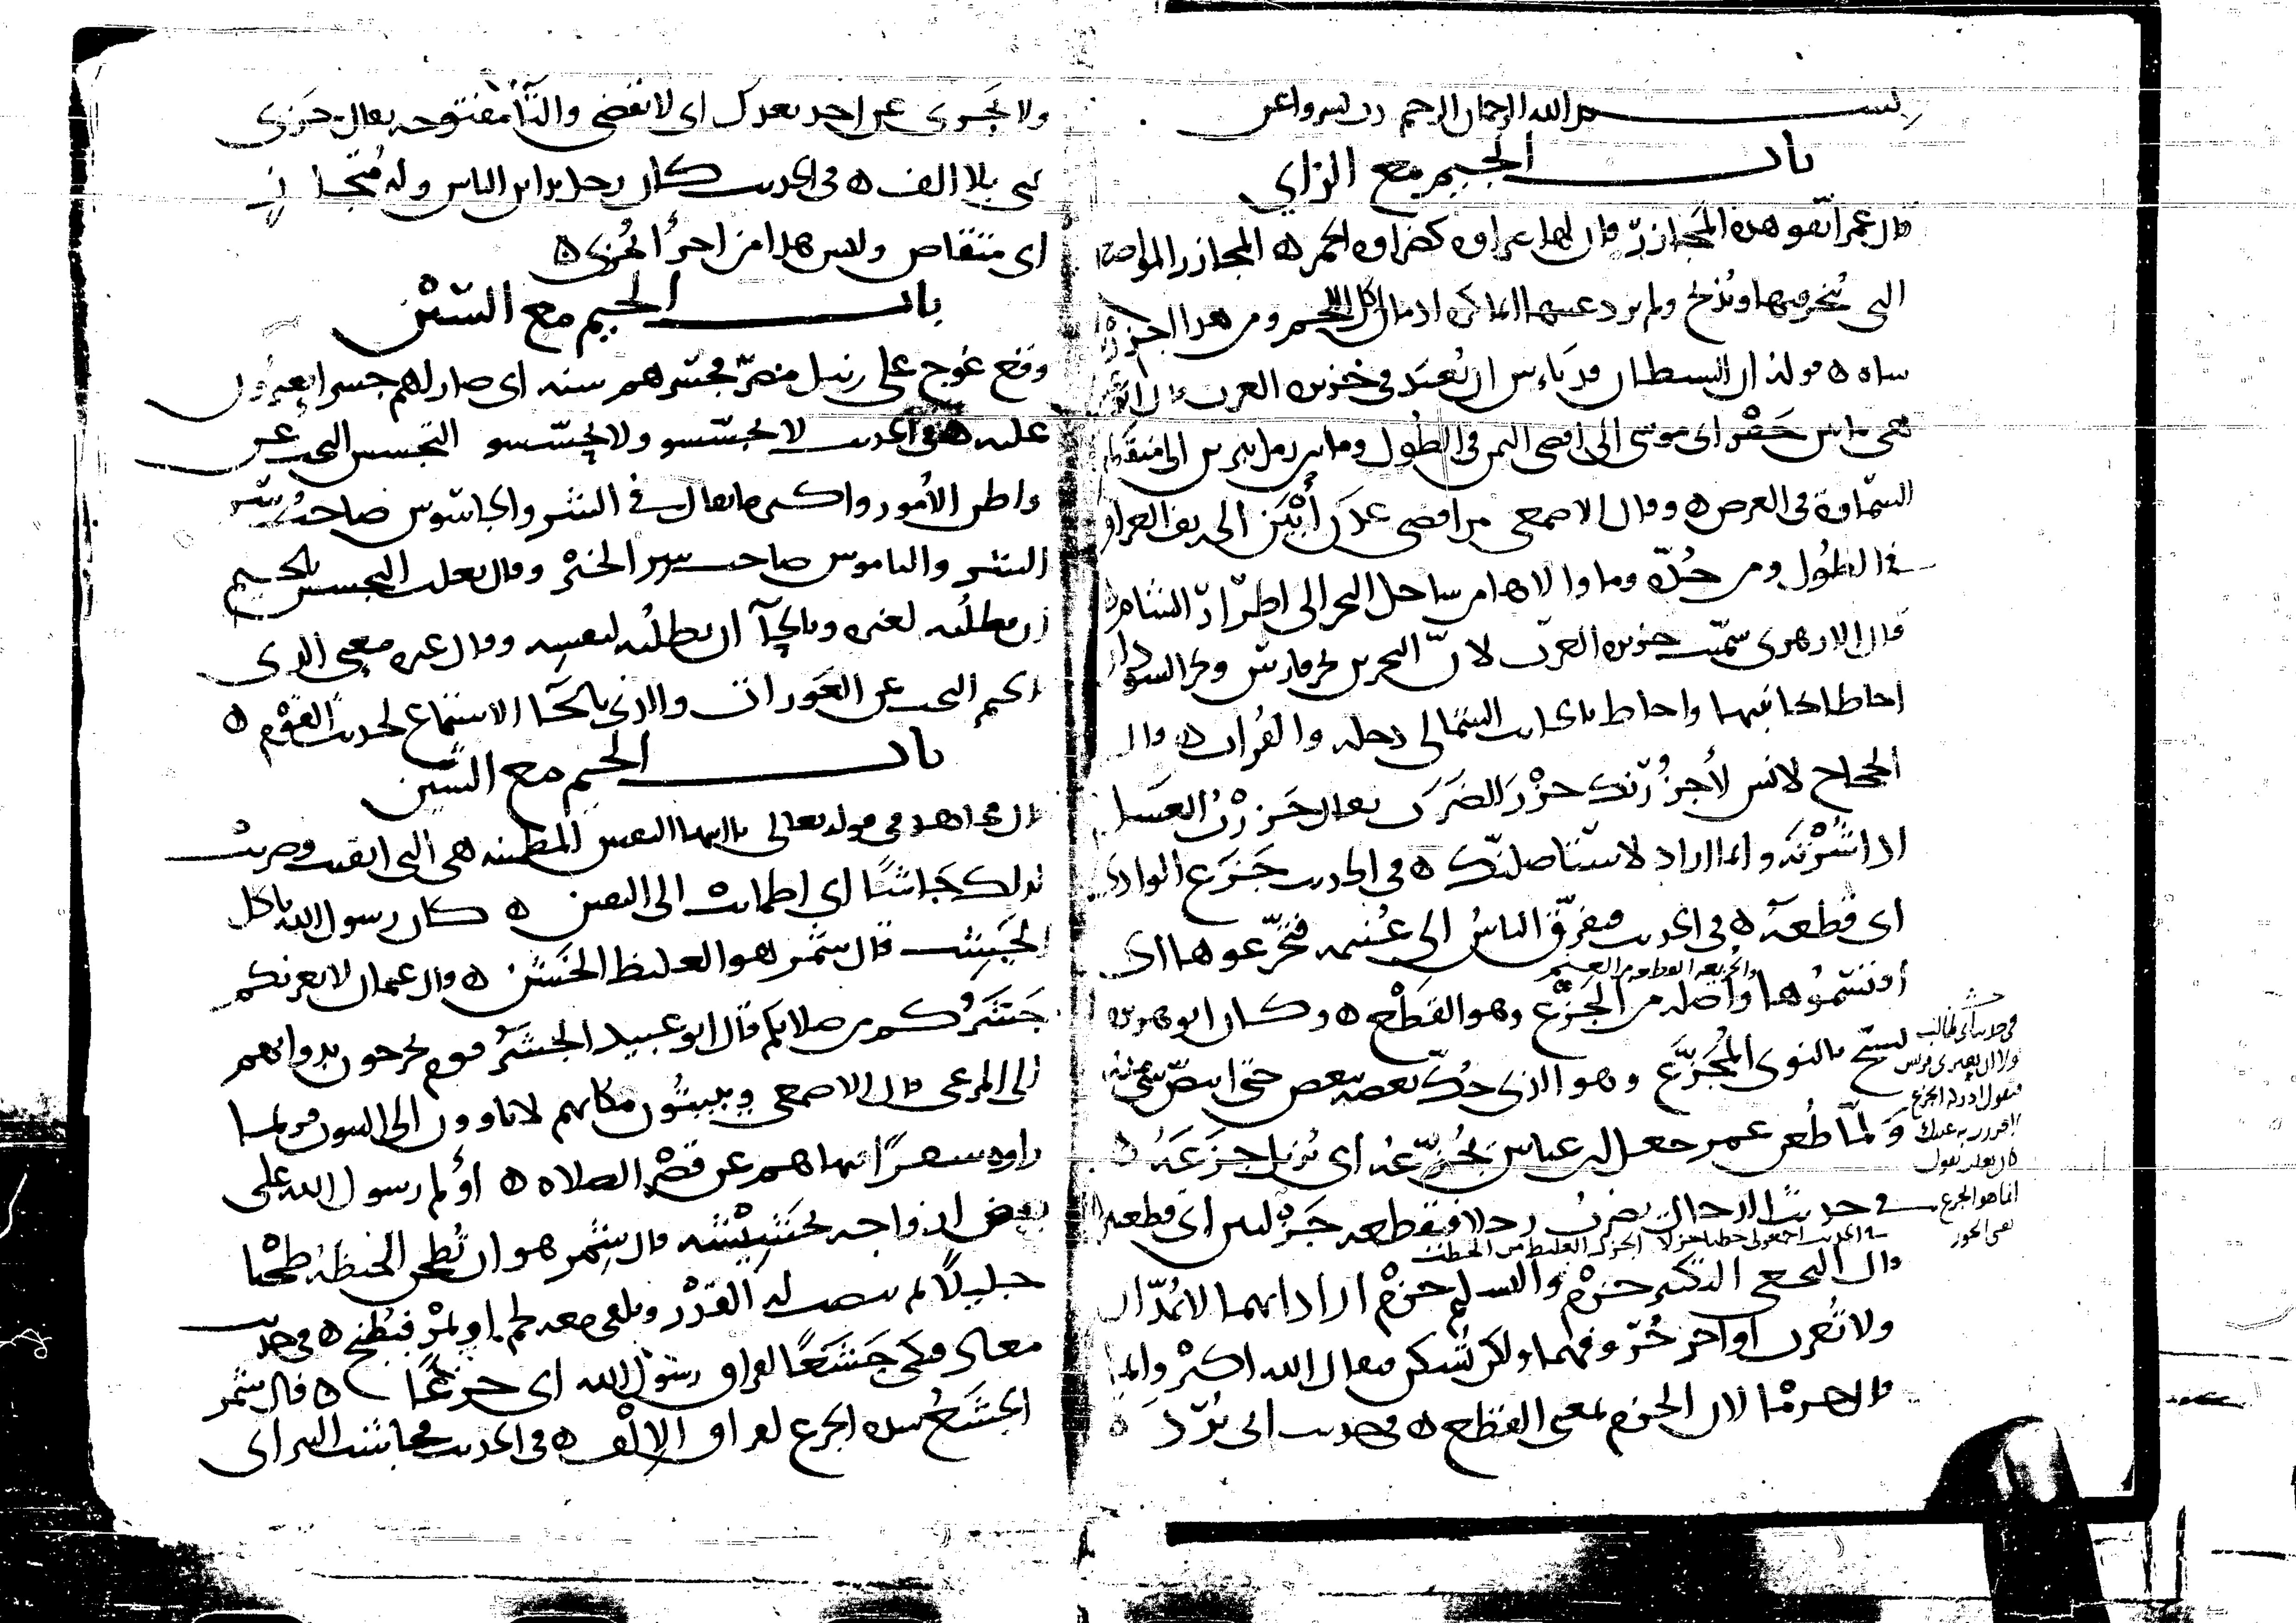 بسم الله الرحمان الرحيم رب يسر واعن
باب الجيم مع الزاي
قال عمر اتقو هذه المجازر فان لها ضراوة كضراوة الخمر ه المجازر المواضع
التي ينحر فيها ويذبح ولم يرد عينها انما كره ادمان اكل اللحم ومن هذا الجزر
قوله ان الشيطان قد يئس ان يعبد في جزيرة العرب قال ابو
هي ما بين حفر ابي موسى الى اقصى اليمن في الطول وما بين رمل يبرين الى منقطع
السماوة في العرض ه وقال الاصمعي من اقصى عدن أبين الى ريف العراق
في الطول ومن جدة وما والاها من ساحل البحر الى اطرار الشام
قال الازهري سميت جزيرة العرب لان البحرين بحر فارس وبحر السودان
احاطا بجانبيها واحاط بالجانب الشمالي دجلة والفرات ه وقال
الحجاج لانس لأجزرنك جزر الضرب يقال جزرت العسل
اذا اشرته وانما اراد لاستاصلنك ه في الحديث جزع الوادي
اي قطعه ه في الحديث فتفرق الناس الى غنيمه فتجزعوها اي
والجزيعه القطعه من الغنم
اقتسموها وأصله من الجزع وهو القطع ه وكان ابو هريرة
يسبح بالنوى المجزع وهو الذي حك بعضه ببعض حتى ابيض شي منه
ولما طعن عمر جعل ابن عباس يجزعه اي يزيل جزعه ه
في حديث الدجال يضرب رجلا فيقطعه جزلتين اي قطعتين
في الحديث اجمعوا لي حطبا جزلا الجزل الغليظ من الحطب
قال النخعي التكبير جزم والتسليم جزم اراد انهما لا يمدان
ولا تعرب اواخر حروفهما ولكن تسكن فيقال الله اكبر وانما
لان الجزم بمعنى القطع ه في حديث ابي بردة
في حديث ابي طالب
لولا ان تعيرني قريش
فتقول ادركه الجزع
لاقررت بها عينك
كان ثعلب يقول
انما هو الخرع
يعني الخور
ولا تجزى عن احد بعدك اي لا تقضي والتا مفتوحه يقال جزى
عني بلا الف ه في الحديث كان رجل يداين الناس وله متجاز
اي متقاض وليس هذا من اجزأ يجزي ه
باب الجيم مع السين
وقع عوج على نيل مصر فجسرهم سنه اي صار لهم جسرا يعبرون
عليه ه في الحديث لا تجسسو ولا تحسسو التجسس البحث عن
بواطن الأمور واكثر ما يقال في الشر والجاسوس صاحب سر
الشر والناموس صاحب سر الخير وقال ثعلب التجسس بالجيم
ان يطلبه لغيره وبالحآ ان يطلبه لنفسه وقال غيره معنى الذي
بالجيم البحث عن العورات والذي بالحآ الاستماع لحديث القوم ه
باب الجيم مع الشين
قال مجاهد في قوله تعالى يا ايتها النفس المطمئنه هي التي ايقنت وضربت
لذلك جاشا اي اطمانت الى اليقين ه كان رسول الله ياكل
الجشب قال شمر هو الغليظ الخشن ه وقال عثمان لا يغرنكم
جشركم من صلاتكم قال ابو عبيد الجشر قوم يخرجون بدوابهم
الى المرعى قال الاصمعي ويبيتون مكانهم لا ياوون الى البيوت فربما
راوه سفرا فنهاهم عن قصر الصلاه ه أولم رسول الله على
بعض ازواجه بجشيشه قال شمر هو ان تطحن الحنطه طحنا
جليلا ثم تنصب له القدر ويلقى معه لحم او تمر فيطبخ ه في حديث
معاذ فبكى جشعا لفراق رسول الله اي جزعا ه قال شمر
الجشع شده الجزع لفراق الإلف ه في الحديث فجاشت البير اي